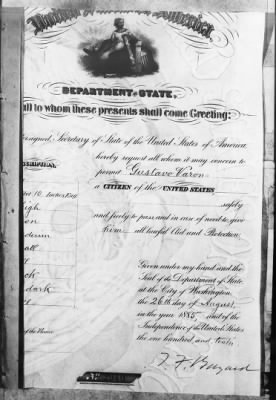 United States of America
DEPARTMENT OF STATE,
all to whom these presents shall come Greeting:
signed, Secretary of State of the United States of America,
hereby request all whom it may concern to
permit Gustave Varon
a CITIZEN of the UNITED STATES
safely
and freely to pass and in case of need to give
him all lawful Aid and Protection.
Given under my hand and the
Seal of the Department of State
at the City of Washington,
the 26th day of August,
in the year 1885 and of the
Independence of the United States
the one hundred and tenth.
T. F. Bayard
10 Inches Eng
igh
all
dark
of the Bearer